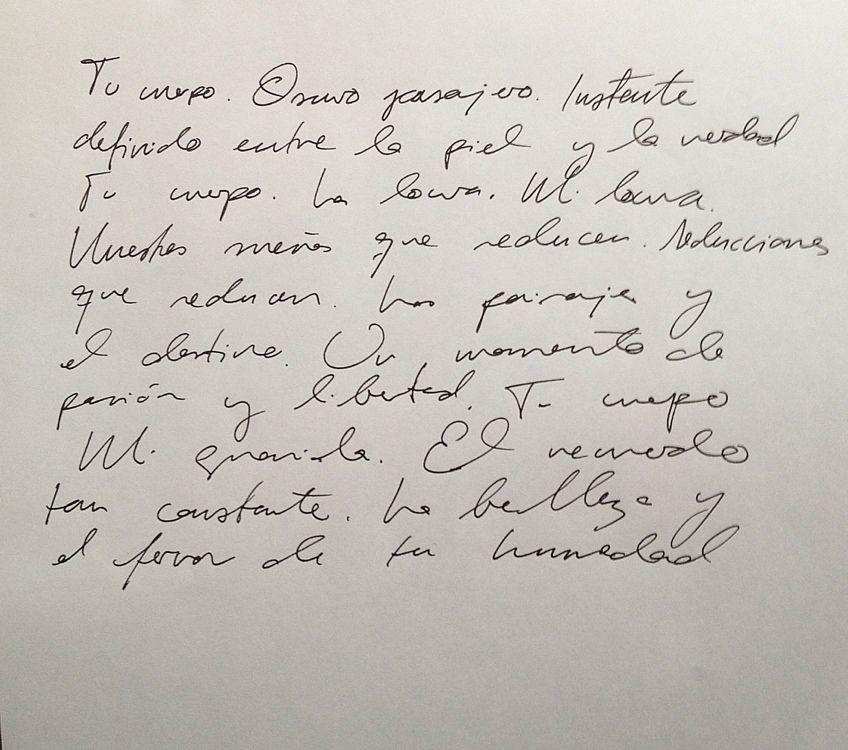 Tu cuerpo. Oscuro pasajero. Instante
definido entre la piel y la verdad
Tu cuerpo. La locura. Mi locura.
Nuestros sueños que seducen. Seducciones
que seducen. Los paisajes y
el destino. Un momento de
pasión y libertad. Tu cuerpo
Mi guarida. El recuerdo
tan constante. La belleza y
el favor de tu humedad